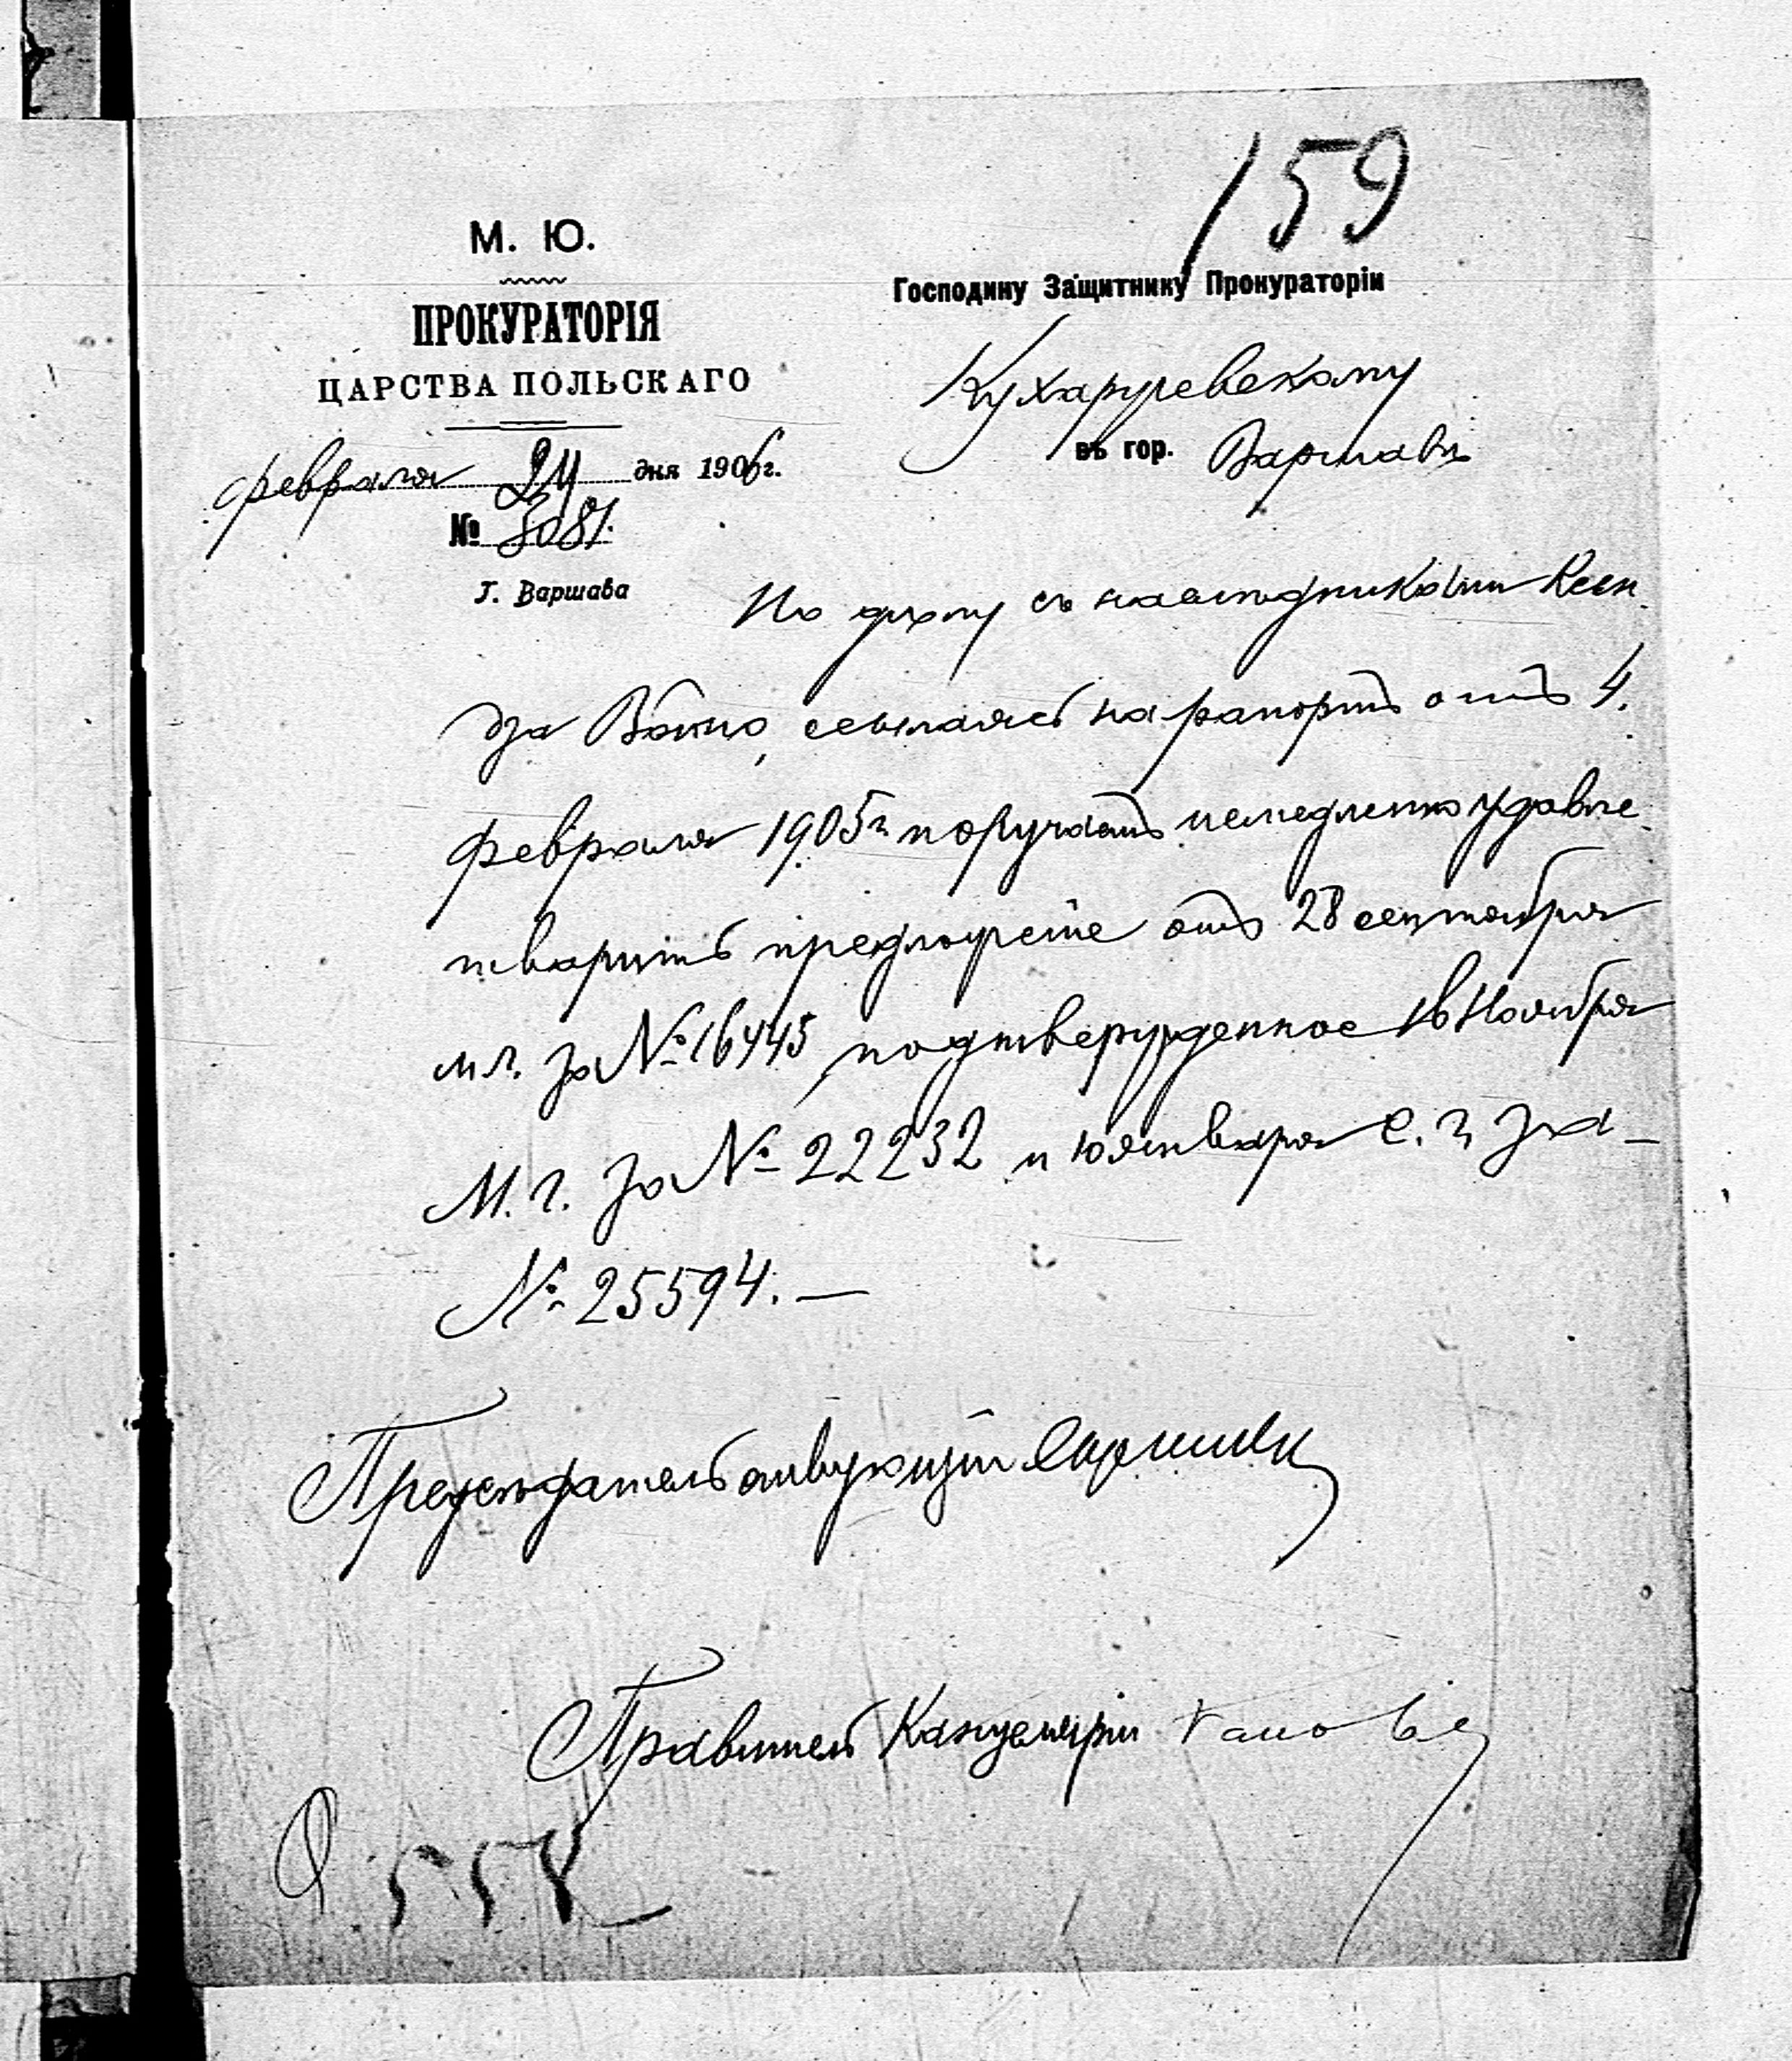 159
М. Ю.
ПРОКУРАТОРІЯ
ЦАРСТВА ПОЛЬСКАГО
февраля 24 дня 1906 г.
№ 3081.
Г. Варшава
Господину Защитнику Прокураторіи
Кухаржевскому
въ гор. Варшавѣ
По дѣлу съ наслѣдниками Ксен
дза Войно, ссылаясь на рапортъ отъ 4.
февраля 1905 г. поручаетъ немедленно удовле
творить предложеніе отъ 28 сентября
м.г. за № 16445, подтвержденное 16 Ноября
М. г. за № 22232 и 10 января с. г. за
№ 25594. —
Предсѣдательствующій
Правитель Канцеляріи